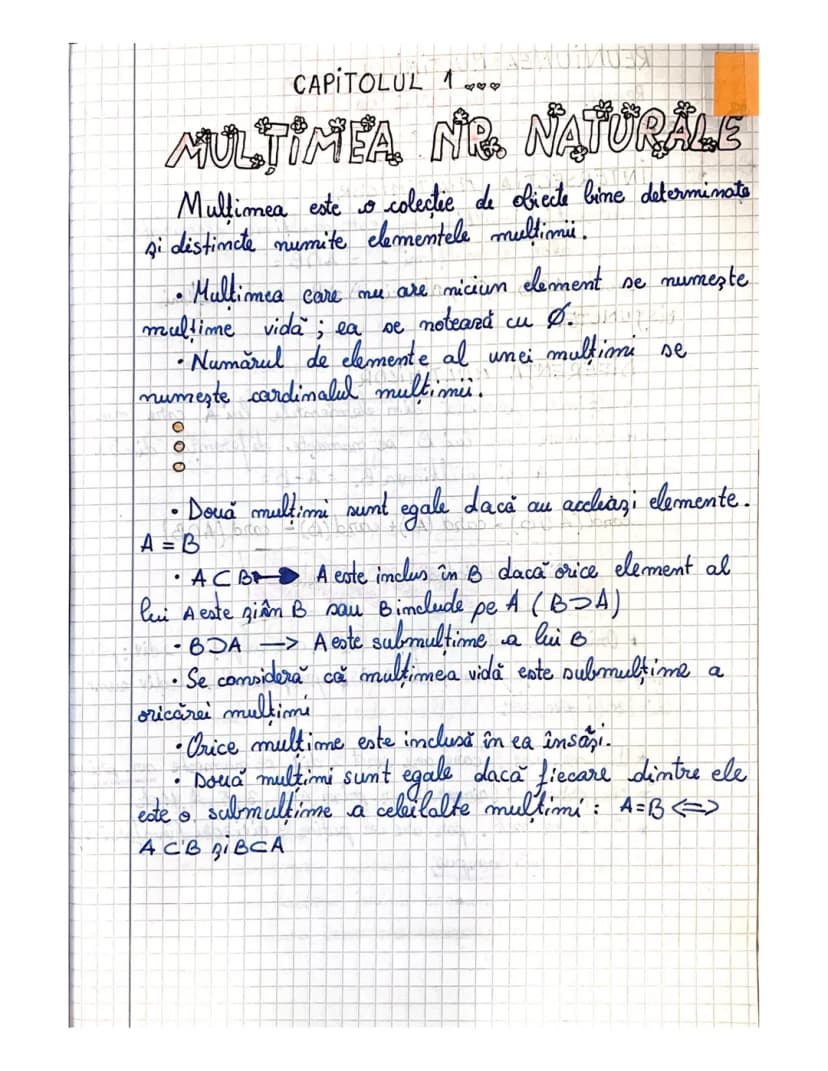 CAPITOLUL 1
MULȚIMEA NR. NATURALE
Mulțimea este o colecție de obiecte bine determinate
și distincte numite elementele mulțimii.
• Mulțimea care nu are niciun element se numește
mulțime vidă; ea se notează cu Ø.
• Numărul de elemente al unei mulțimi se
numește cardinalul mulțimii.
• Două mulțimi sunt egale dacă au aceleași elemente.
A = B
• A ⊂ B → A este inclus în B dacă orice element al
lui A este și în B sau B include pe A (B⊃A)
• B⊃A —> A este submulțime a lui B
• Se consideră că mulțimea vidă este submulțime a
oricărei mulțimi
• Orice mulțime este inclusă în ea însăși.
• Două mulțimi sunt egale dacă fiecare dintre ele
este o submulțime a celeilalte mulțimi: A=B <=>
A⊂B și B⊂A